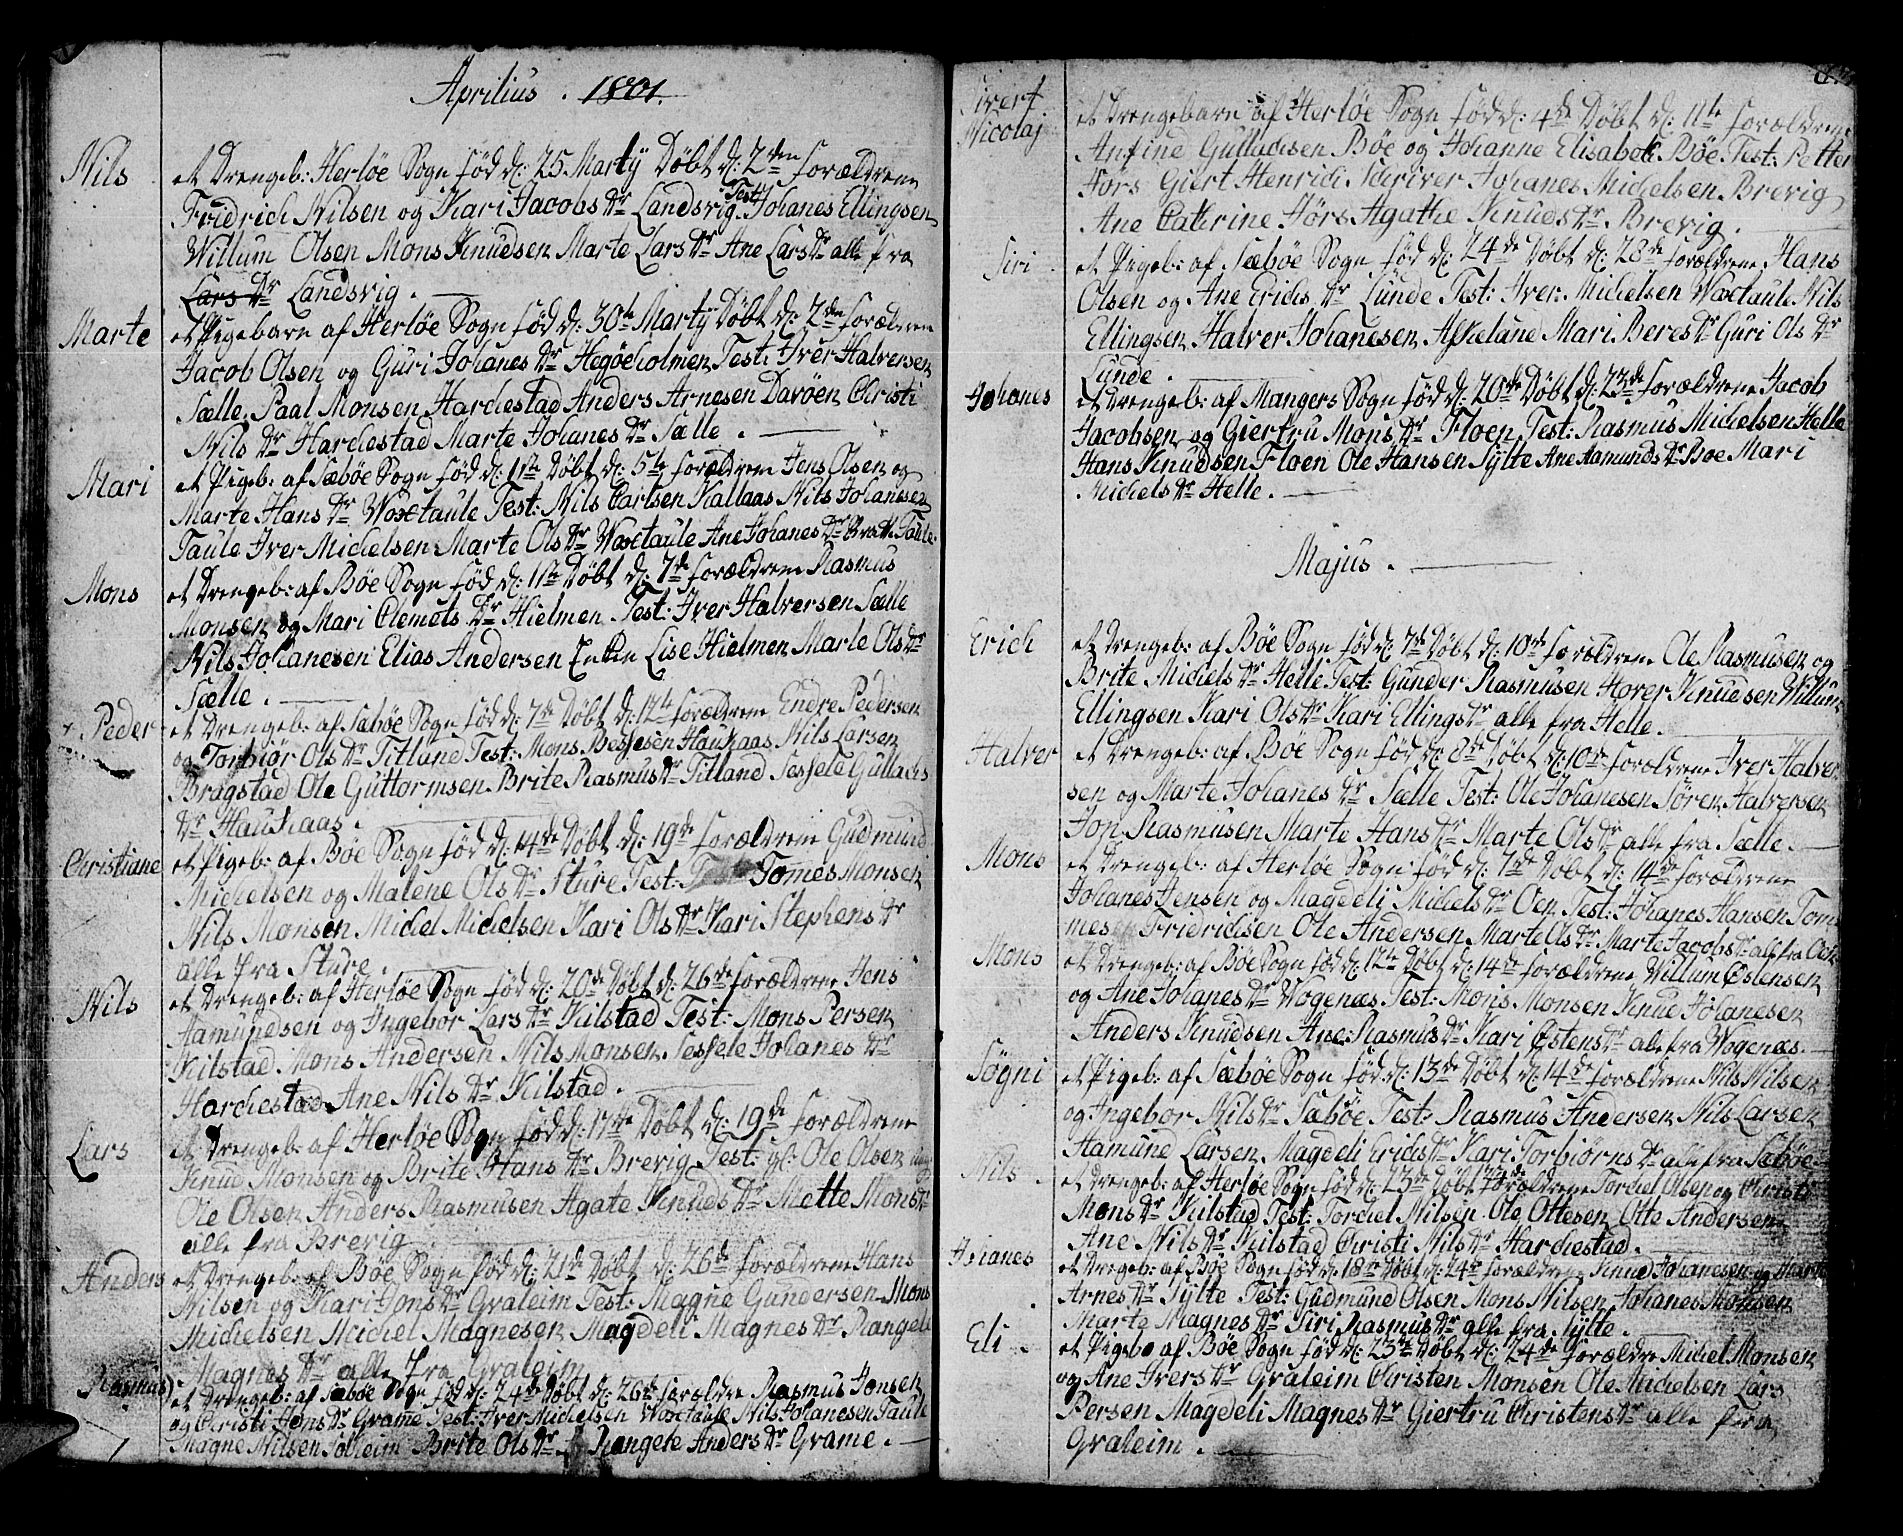 Aprilius . 1801.
Nils
et Drengeb: Herløe Sogn fød d: 25 Martÿ Døbt d: 2den forældrene
Fridrich Nilsen og Kari Jacobs Dr Landsvig Test: Johanes Ellingsen
Willum Olsen Mons Knudsen Marte Lars Dr Ane Lars Dr alle fra
Lars Dr Landsvig .
Marte
et Pigebarn af Herløe Sogn fød d: 30te Martÿ Døbt d: 2den forældrene
Jacob Olsen og Guri Johanes Dr Hegøeholmen Test: Iver Halversen
Sælle Paal Monsen Harchestad Anders Arnesen Davøen Christi
Nils Dr Harchestad Marte Johanes Dr Sælle .
Mari
et Pigeb: af Sæbøe Sogn fød d: 1ste Døbt d: 5te forældrene Jens Olsen og
Marte Hans Dr Woxtaule Test: Nils Carlsen Kallaas Nils Johanesen
Taule Iver Michelsen Marte Ols Dr Woxtaule Ane Johanes Dr Taule
Mons
et Drengeb: af Bøe Sogn fød d: 1ste Døbt d: 7de forældrene Rasmus
Monsen og Mari Clemets Dr Hielmen Test: Iver Halversen Sælle
Nils Johanesen Elias Andersen Enken Lise Hielmen Marte Ols Dr
Sælle .
Peder
et Drengeb: af Sæbøe Sogn fød d: 7de Døbt d: 12te forældrene Endre Pedersen
og Torbiør Ols Dr Titland Test: Mons Bessesen Hauchaas Nils Larsen
Bragstad Ole Guttormsen Brite Rasmus Dr Titland Sessele Gullachs
Dr Hauchaas .
Christiane
et Pigeb: af Bøe Sogn fød d: 14de Døbt d: 19de forældrene Gudmund
Michelsen og Malene Ols Dr Sture Test: Tomes Monsen
Nils Monsen Michel Michelsen Kari Ols Dr Kari Stephens Dr
alle fra Sture .
Nils
et Drengeb: af Herløe Sogn fød d: 20de Døbt d: 26de forældrene Jens
Aamundsen og Ingebor Lars Dr Kilstad Test: Mons Persen
Kilstad Mons Andersen Nils Monsen Sessele Johanes Dr
Harchestad Ane Nils Dr Kilstad .
Lars
et Drengeb: af Herløe Sogn fød d: 17de Døbt d: 19de forældrene
Knud Monsen og Brite Hans Dr Brevig Test: gl: Ole Olsen ung
Ole Olsen Anders Rasmusen Agate Knuds Dr Mette Mons Dr
alle fra Brevig .
Anders
et Drengeb: af Bøe Sogn fød d: 21de Døbt d: 26de forældrene Hans
Nilsen og Kari Jons Dr Graleim Test: Magne Gundersen Mons
Michelsen Michel Magnesen Magdeli Magnes Dr Rangele
Magnes Dr alle fra Graleim
Rasmus
et Drengeb: af Sæbøe Sogn fød d: 24de Døbt d: 26de forældre Rasmus Jonsen
og Christi Jons Dr Grame Test: Iver Michelsen Woxtaule Nils Johanesen Taule
Magne Nilsen Solheim Brite Ols Dr Rangele Anders Dr Grame .
Sivert
Nicolaj
et Drengebarn af Herløe Sogn fød d: 4de Døbt d: 11te forældrene
Anfind Gullachsen Bøe og Johanne Elisabet Bøe Test: Petter
Førs Giert Henrich Schriver Johanes Michelsen Brevig
Ane Cathrine Førs Agathe Knuds Dr Brevig .
Siri
et Pigeb: af Sæbøe Sogn fød d: 24de Døbt d: 28de forældrene Hans
Olsen og Ane Erichs Dr Lunde Test: Iver Michelsen Woxtaule Nils
Ellingsen Halver Johanesen Askeland Mari Beres Dr Guri Ols Dr
Lunde .
Johanes
et Drengeb: af Mangers Sogn fød d: 20de Døbt d: 23de forældrene Jacob
Jacobsen og Giertru Mons Dr Floen Test: Rasmus Michelsen Helle
Hans Knudsen Floen Ole Hansen Sylte Ane Aamunds Dr Bøe Mari
Michels Dr Helle .
Majus .
Erich
et Drengeb: af Bøe Sogn fød d: 7de Døbt d: 10de forældrene Ole Rasmusen og
Brite Michels Dr Helle Test: Gunder Rasmusen Hover Knudsen Willum
Ellingsen Kari Ols Dr Kari Ellings Dr alle fra Helle .
Halver
et Drengeb: af Bøe Sogn fød d: 8de Døbt d: 10de forældrene Iver Halver
sen og Marte Johanes Dr Sælle Test: Ole Johanesen Søren Halversen
Jon Rasmusen Marte Hans Dr Marte Ols Dr alle fra Sælle .
Mons
et Drengeb: af Herløe Sogn fød d: 7de Døbt d: 14de forældrene
Johanes Jensen og Magdeli Michels Dr Oen Test: Johanes Hansen Tom
mes Fridrichsen Ole Andersen Marte Ols Dr Marte Jacobs Dr alle fra Oen
Mons
et Drengeb: af Bøe Sogn fød d: 12te Døbt d: 14de forældrene Willum Østensen
og Ane Johanes Dr Wogenæs Test: Mons Monsen Knud Johanesen
Anders Knudsen Ane Rasmus Dr Kari Østens Dr alle fra Wogenæs .
Søgni
et Pigeb: af Sæbøe Sogn fød d: 13de Døbt d: 14de forældrene Nils Nilsen
og Ingebor Nils Dr Sæbøe Test: Rasmus Andersen Nils Larsen
Aamund Larsen Magdeli Erichs Dr Kari Torbiørns Dr alle fra Sæbøe
Nils
et Drengeb: af Herløe Sogn fød d: 23de Døbt forældrene Torchel Olsen og Christi
Mons Dr Kilstad Test: Torchel Nilsen Ole Ottesen Otte Andersen
Ane Nils Dr Kilstad Christi Nils Dr Harchestad .
Johanes
et Dregeb: af Bøe Sogn fød d: 18de Døbt d: 24de forældrene Knud Johanesen og Marte
Arnes Dr Sylte Test: Gudmund Olsen Mons Nilsen Johanes Monsen
Marte Magnes Dr Siri Rasmus Dr alle fra Sylte .
Eli .
et Pigeb af Bøe Sogn fød d: 23de Døbt d: 24de forældre Michel Monsen
og Ane Ivers Dr Graleim Christen Monsen Ole Michelsen Lars
Persen Magdeli Magnes Dr Giertru Christens Dr alle fra
Graleim .